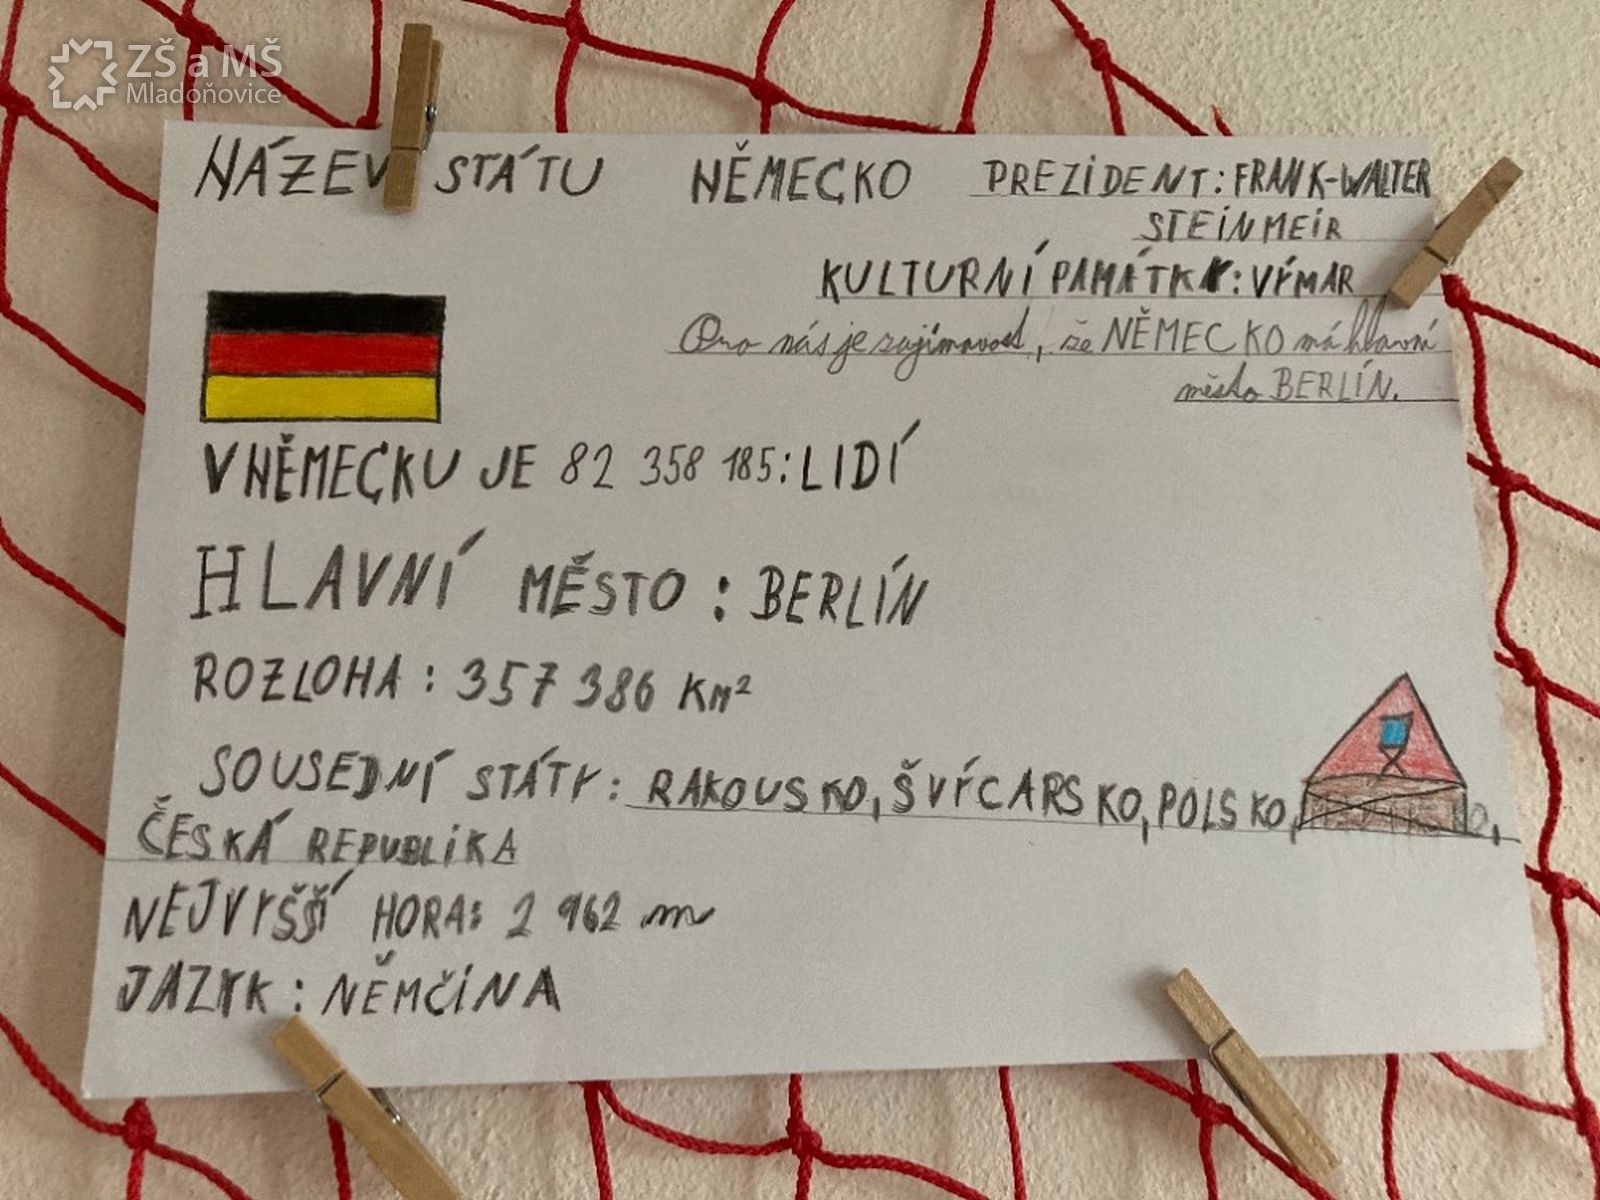 ZŠ a MŠ
Mladoňovice
NÁZEV STÁTU NĚMECKO PREZIDENT: FRANK-WALTER
STEINMEIR
KULTURNÍ PAMÁTKY: VÝMAR
Pro nás je zajímavost, že NĚMECKO má hlavní
město BERLÍN.
V NĚMECKU JE 82 358 185: LIDÍ
HLAVNÍ MĚSTO : BERLÍN
ROZLOHA : 357 386 Km²
SOUSEDNÍ STÁTY : RAKOUSKO, ŠVÝCARSKO, POLSKO,
ČESKÁ REPUBLIKA
NEJVYŠŠÍ HORA: 2 962 m
JAZYK : NĚMČINA